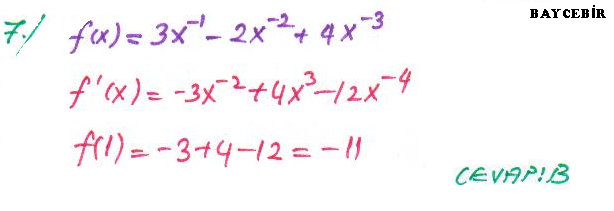 BAYCEBİR
7./ f(x) = 3x⁻¹ - 2x⁻² + 4x⁻³
f'(x) = -3x⁻² + 4x³ - 12x⁻⁴
f(1) = -3+4-12 = -11
CEVAP!B